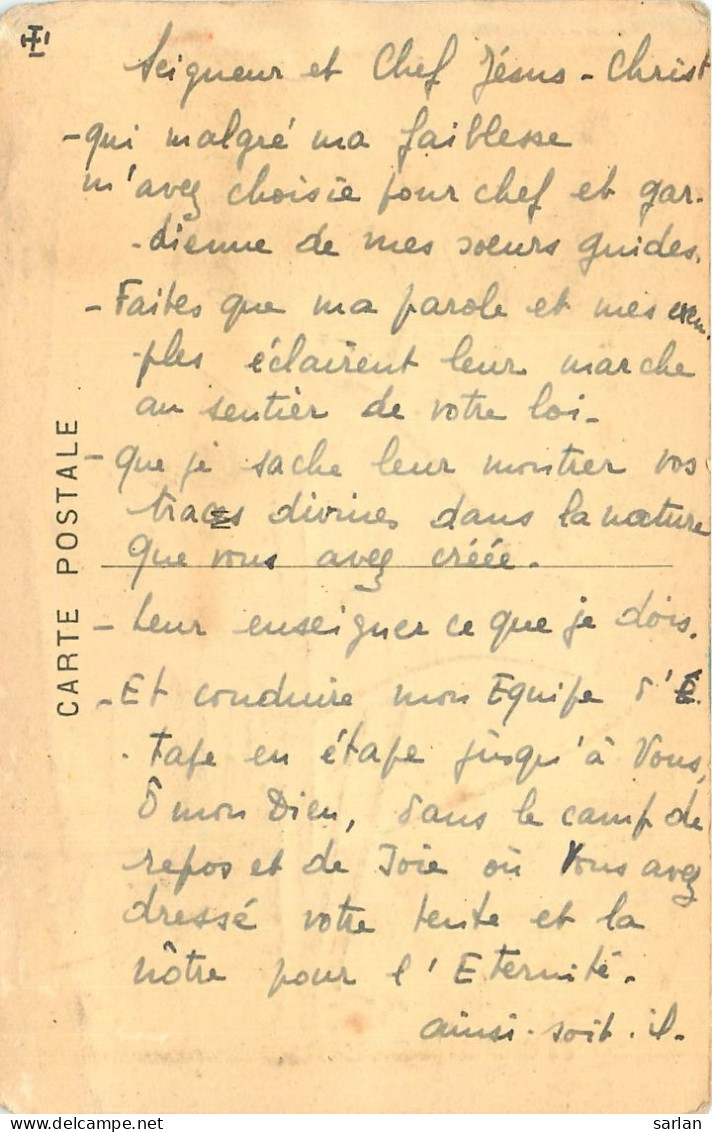 Seigneur et Chef Jésus-Christ
- qui malgré ma faiblesse
m'avez choisie pour chef et gar-
-dienne de mes soeurs guides.
- Faites que ma parole et mes exem-
-ples éclairent leur marche
au sentier de votre loi-
- que je sache leur montrer vos
traces divines dans la nature
que vous avez créée.
- Leur enseigner ce que je dois.
- Et conduire mon Equipe d'é-
-tape en étape jusqu'à Vous,
ô mon Dieu, dans le camp de
repos et de Joie où Vous avez
dressé votre tente et la
nôtre pour l'Eternité.
ainsi-soit-il-
CARTE POSTALE
M
delcampe.net
sarlan